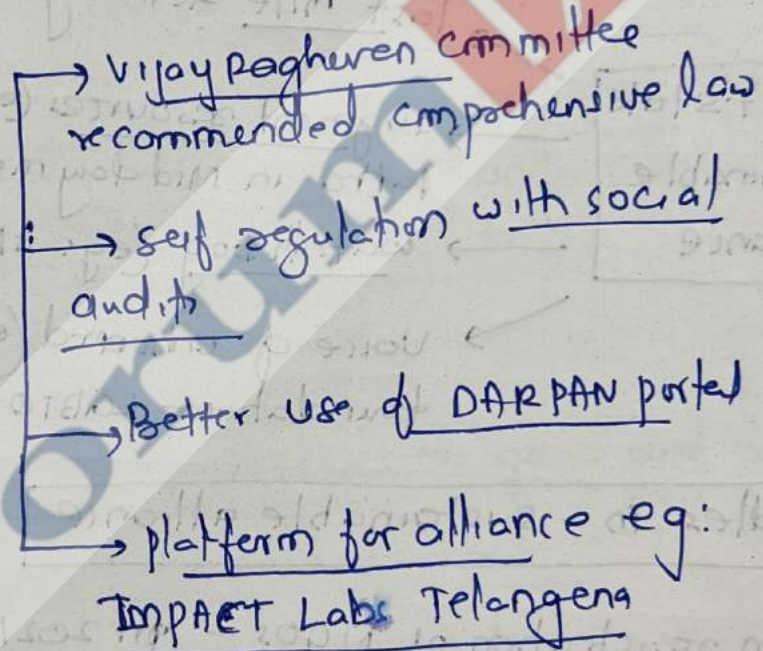 → Vijay Raghuren committee
recommended cmprehensive law
→ self regulation with social
audits
→ Better use of DARPAN portal
→ platform for alliance eg:
IMPACT Labs Telangena
orum